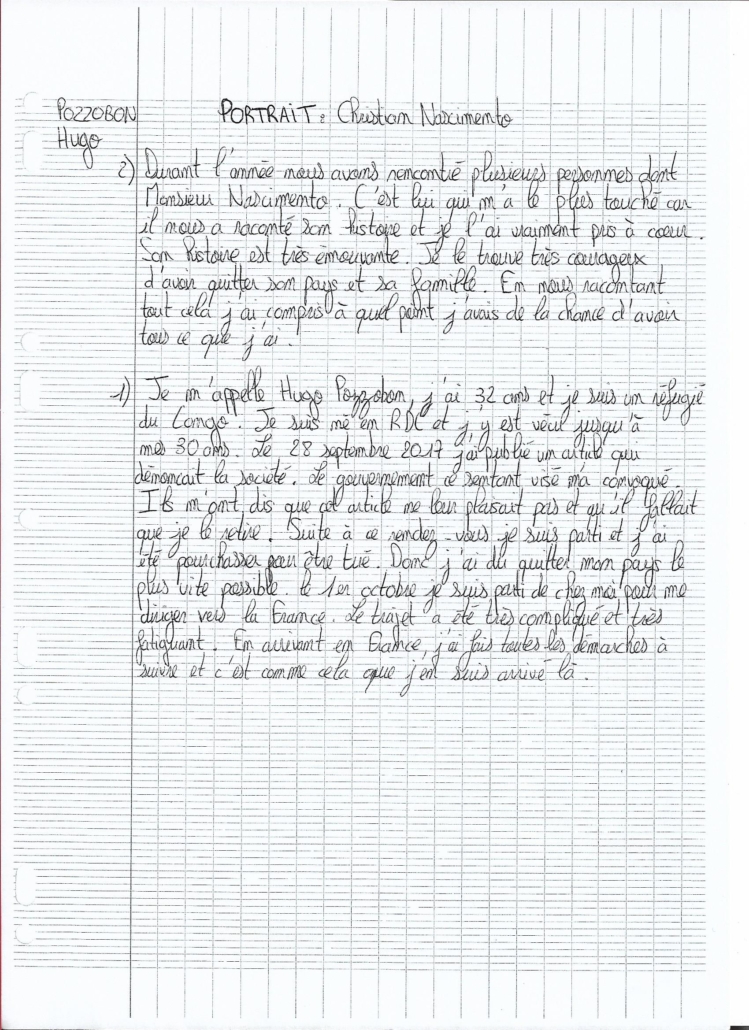 POZZOBON
Hugo
PORTRAIT : Christian Nascimento
2) Durant l'année nous avons rencontré plusieurs personnes dont
Monsieur Nascimento. C'est lui qui m'a le plus touché car
il nous a raconté son histoire et je l'ai vraiment pris à coeur.
Son histoire est très émouvante. Je le trouve très courageux
d'avoir quitter son pays et sa famille. En nous racontant
tout celà j'ai compris à quel point j'avais de la chance d'avoir
tous ce que j'ai.
1) Je m'appelle Hugo Pozzobon, j'ai 32 ans et je suis un réfugié
du Congo. Je suis né en RDC et j'y est vécu jusqu'à
mes 30 ans. Le 28 septembre 2017 j'ai publié un article qui
dénoncait la société. Le gouvernement ce sentant visé m'a convoqué.
Ils m'ont dis que cet article ne leur plaisait pas et qu'il fallait
que je le retire. Suite à ce rendez-vous je suis parti et j'ai
été pourchasser pour être tué. Donc j'ai du quitter mon pays le
plus vite possible. le 1er octobre je suis parti de chez moi pour me
diriger vers la France. Le trajet a été très compliqué et très
fatiguant. En arrivant en France, j'ai fais toutes les démarches à
suivre et c'est comme cela que j'en suis arrivé là.